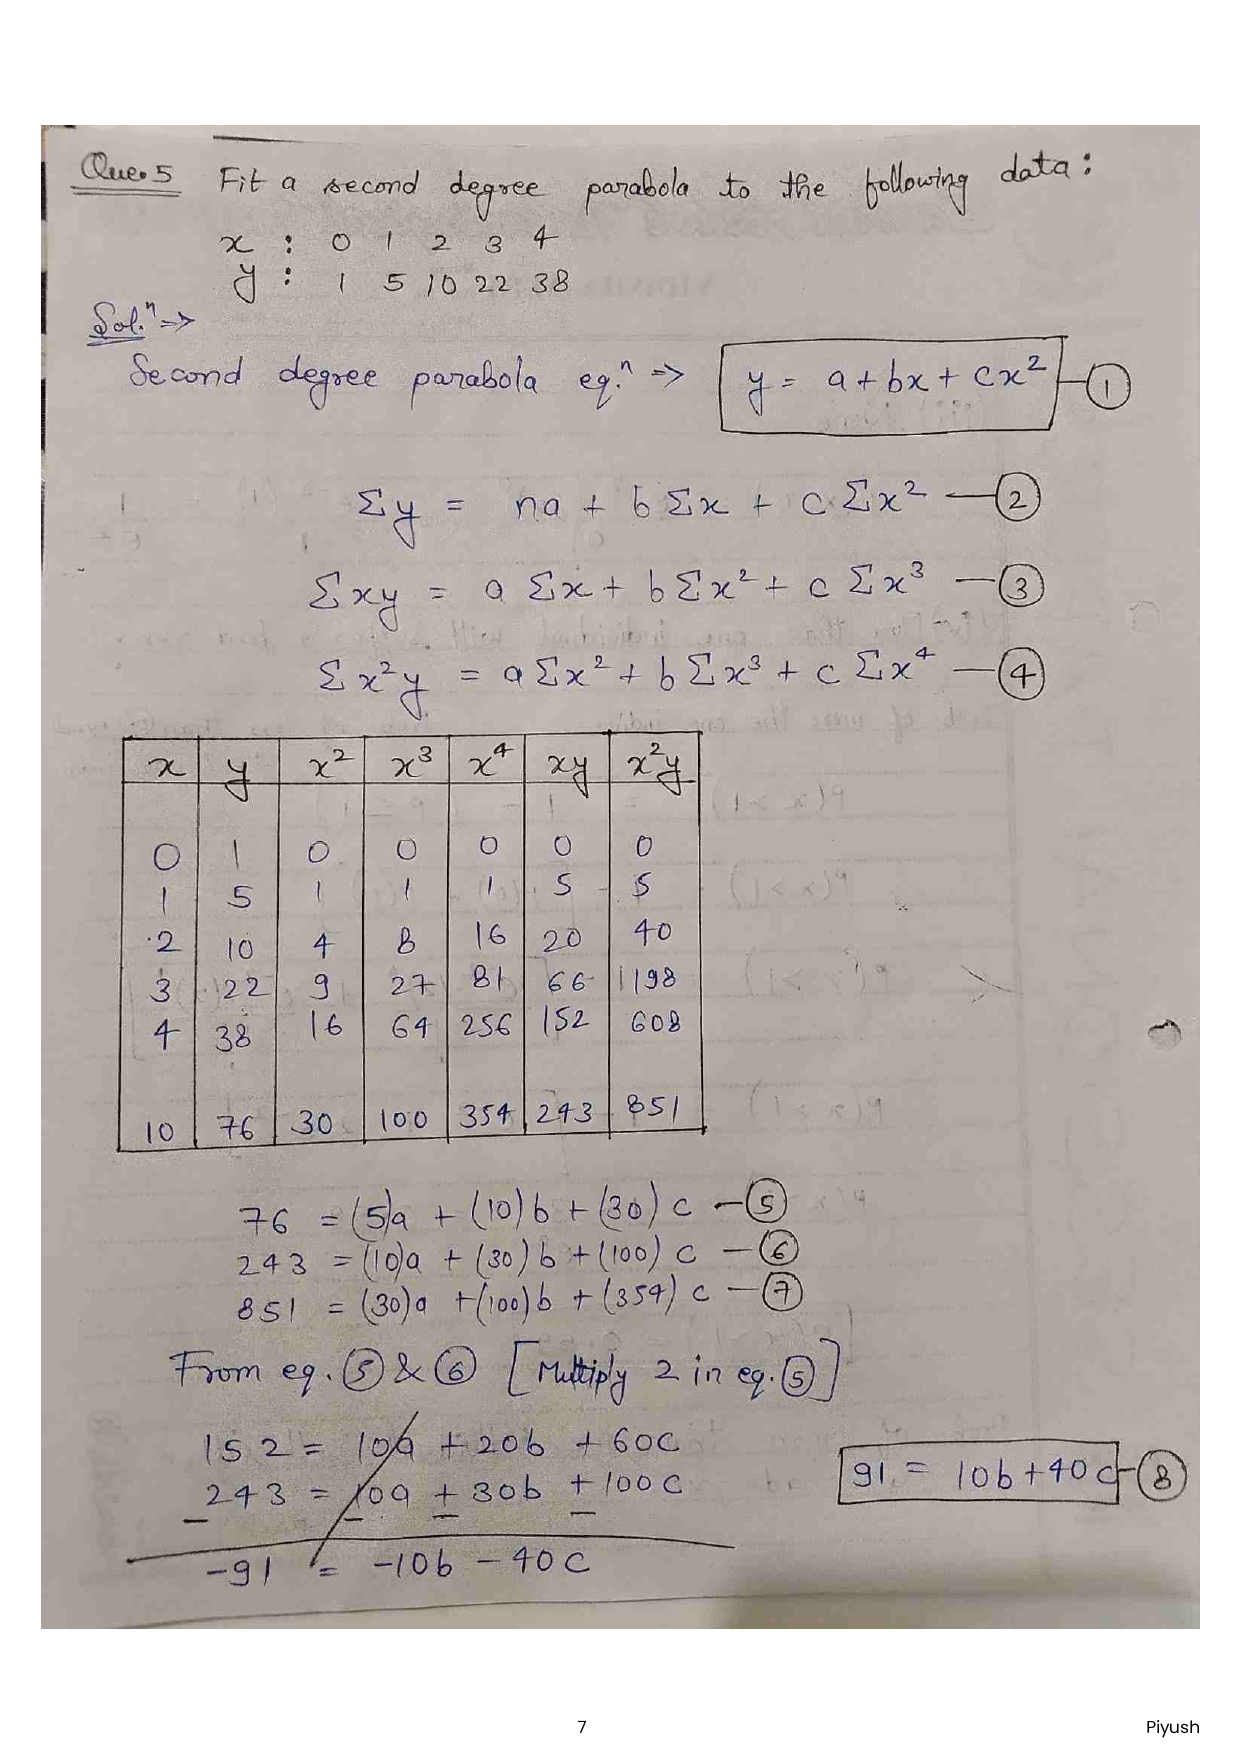 Que.5 Fit a second degree parabola to the following data:
x : 0 1 2 3 4
y : 1 5 10 22 38
Sol.ⁿ ⇒
Second degree parabola eq.ⁿ ⇒ y = a + bx + cx² — ①
Σy = na + bΣx + cΣx² — ②
Σxy = aΣx + bΣx² + cΣx³ — ③
Σx²y = aΣx² + bΣx³ + cΣx⁴ — ④
x y x² x³ x⁴ xy x²y
0 1 0 0 0 0 0
1 5 1 1 1 5 5
2 10 4 8 16 20 40
3 22 9 27 81 66 198
4 38 16 64 256 152 608
10 76 30 100 354 243 851
76 = (5)a + (10)b + (30)c — ⑤
243 = (10)a + (30)b + (100)c — ⑥
851 = (30)a + (100)b + (354)c — ⑦
From eq. ⑤ & ⑥ [Multiply 2 in eq. ⑤]
152 = 10a + 20b + 60c
243 = 10a + 30b + 100c
− − − −
-91 = -10b - 40c
91 = 10b + 40c — ⑧
7
Piyush